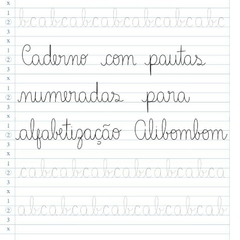 bcabcabcabcabcabcabc
Caderno com pautas
numeradas para
alfabetização Alibombom
abcabcabcabcabcabcabca
abcabcabcabcabcabcabc